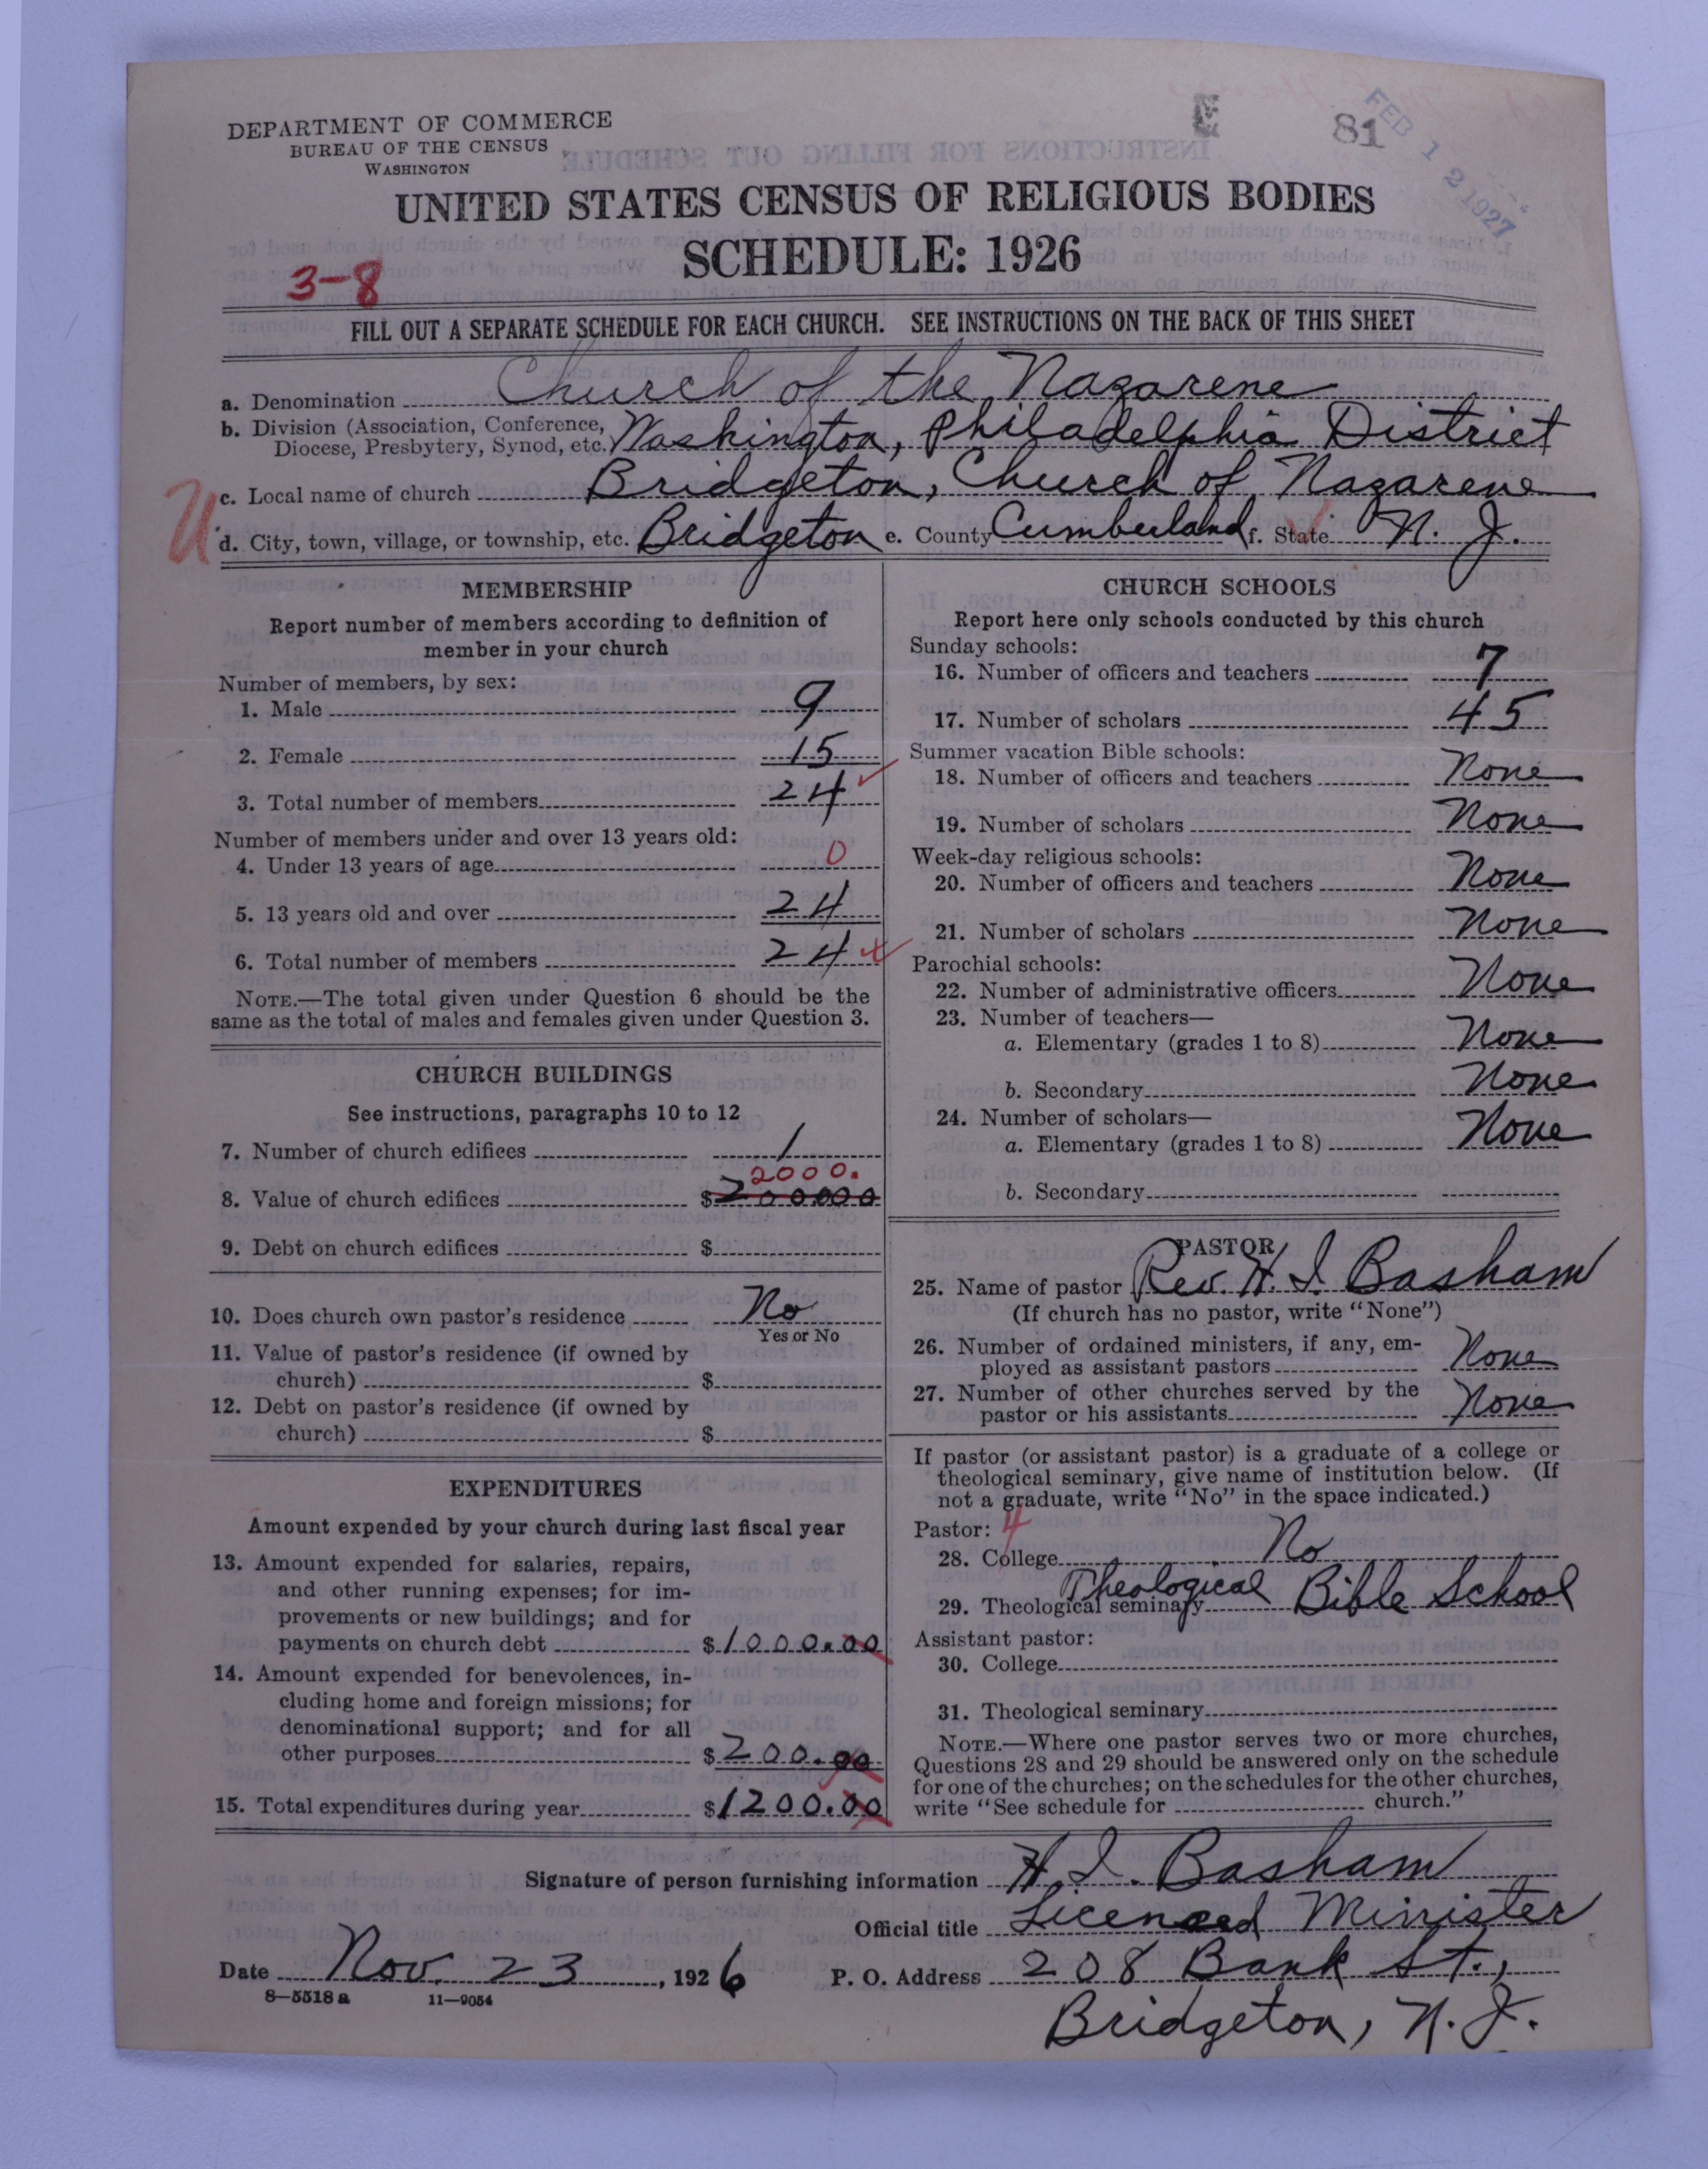 DEPARTMENT OF COMMERCE
BUREAU OF THE CENSUS
WASHINGTON
E
81
FEB 12 1927
UNITED STATES CENSUS OF RELIGIOUS BODIES
SCHEDULE: 1926
3-8
FILL OUT A SEPARATE SCHEDULE FOR EACH CHURCH. SEE INSTRUCTIONS ON THE BACK OF THIS SHEET
a. Denomination Church of the Nazarene
b. Division (Association, Conference,
Diocese, Presbytery, Synod, etc.) Washington, Philadelphia District
c. Local name of church Bridgeton, Church of Nazarene
U
d. City, town, village, or township, etc. Bridgeton e. County Cumberland f. State N. J.
MEMBERSHIP
Report number of members according to definition of
member in your church
Number of members, by sex:
1. Male 9
2. Female 15
3. Total number of members 24
Number of members under and over 13 years old:
4. Under 13 years of age 0
5. 13 years old and over 24
6. Total number of members 24
NOTE.—The total given under Question 6 should be the
same as the total of males and females given under Question 3.
CHURCH BUILDINGS
See instructions, paragraphs 10 to 12
7. Number of church edifices 1
2000.
8. Value of church edifices $200000
9. Debt on church edifices $
10. Does church own pastor's residence No
Yes or No
11. Value of pastor's residence (if owned by
church) $
12. Debt on pastor's residence (if owned by
church) $
EXPENDITURES
Amount expended by your church during last fiscal year
13. Amount expended for salaries, repairs,
and other running expenses; for im-
provements or new buildings; and for
payments on church debt $1000.00
14. Amount expended for benevolences, in-
cluding home and foreign missions; for
denominational support; and for all
other purposes $200.00
15. Total expenditures during year $1200.00
CHURCH SCHOOLS
Report here only schools conducted by this church
Sunday schools:
16. Number of officers and teachers 7
17. Number of scholars 45
Summer vacation Bible schools:
18. Number of officers and teachers None
19. Number of scholars None
Week-day religious schools:
20. Number of officers and teachers None
21. Number of scholars None
Parochial schools:
22. Number of administrative officers None
23. Number of teachers—
a. Elementary (grades 1 to 8) None
b. Secondary None
24. Number of scholars—
a. Elementary (grades 1 to 8) None
b. Secondary
PASTOR
25. Name of pastor Rev. H. I. Basham
(If church has no pastor, write "None")
26. Number of ordained ministers, if any, em-
ployed as assistant pastors None
27. Number of other churches served by the
pastor or his assistants None
If pastor (or assistant pastor) is a graduate of a college or
theological seminary, give name of institution below. (If
not a graduate, write "No" in the space indicated.)
Pastor: 4
28. College No
29. Theological seminary Theological Bible School
Assistant pastor:
30. College
31. Theological seminary
NOTE.—Where one pastor serves two or more churches,
Questions 28 and 29 should be answered only on the schedule
for one of the churches; on the schedules for the other churches,
write "See schedule for church."
Signature of person furnishing information H. I. Basham
Official title Licensed Minister
Date Nov. 23, 1926 P. O. Address 208 Bank St.,
8—5518 a 11—9054
Bridgeton, N. J.